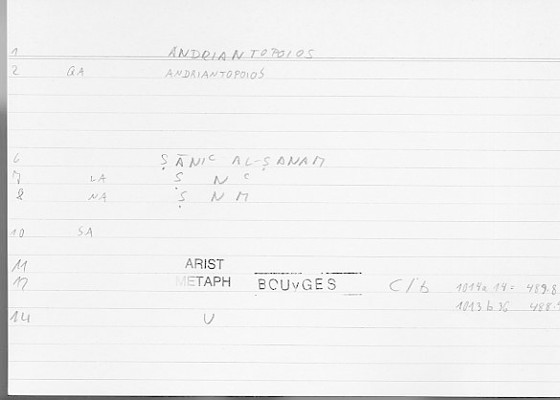 1 ANDRIANTOPOIOS
2 GA ANDRIANTOPOIOS
6 ṢĀNIC AL-ṢANAM
7 LA Ṣ N C
8 NA Ṣ N M
10 SA
11 ARIST
12 METAPH BOUvGES C/b 1014a 14 = 489.8
1013b36 488.
14 U